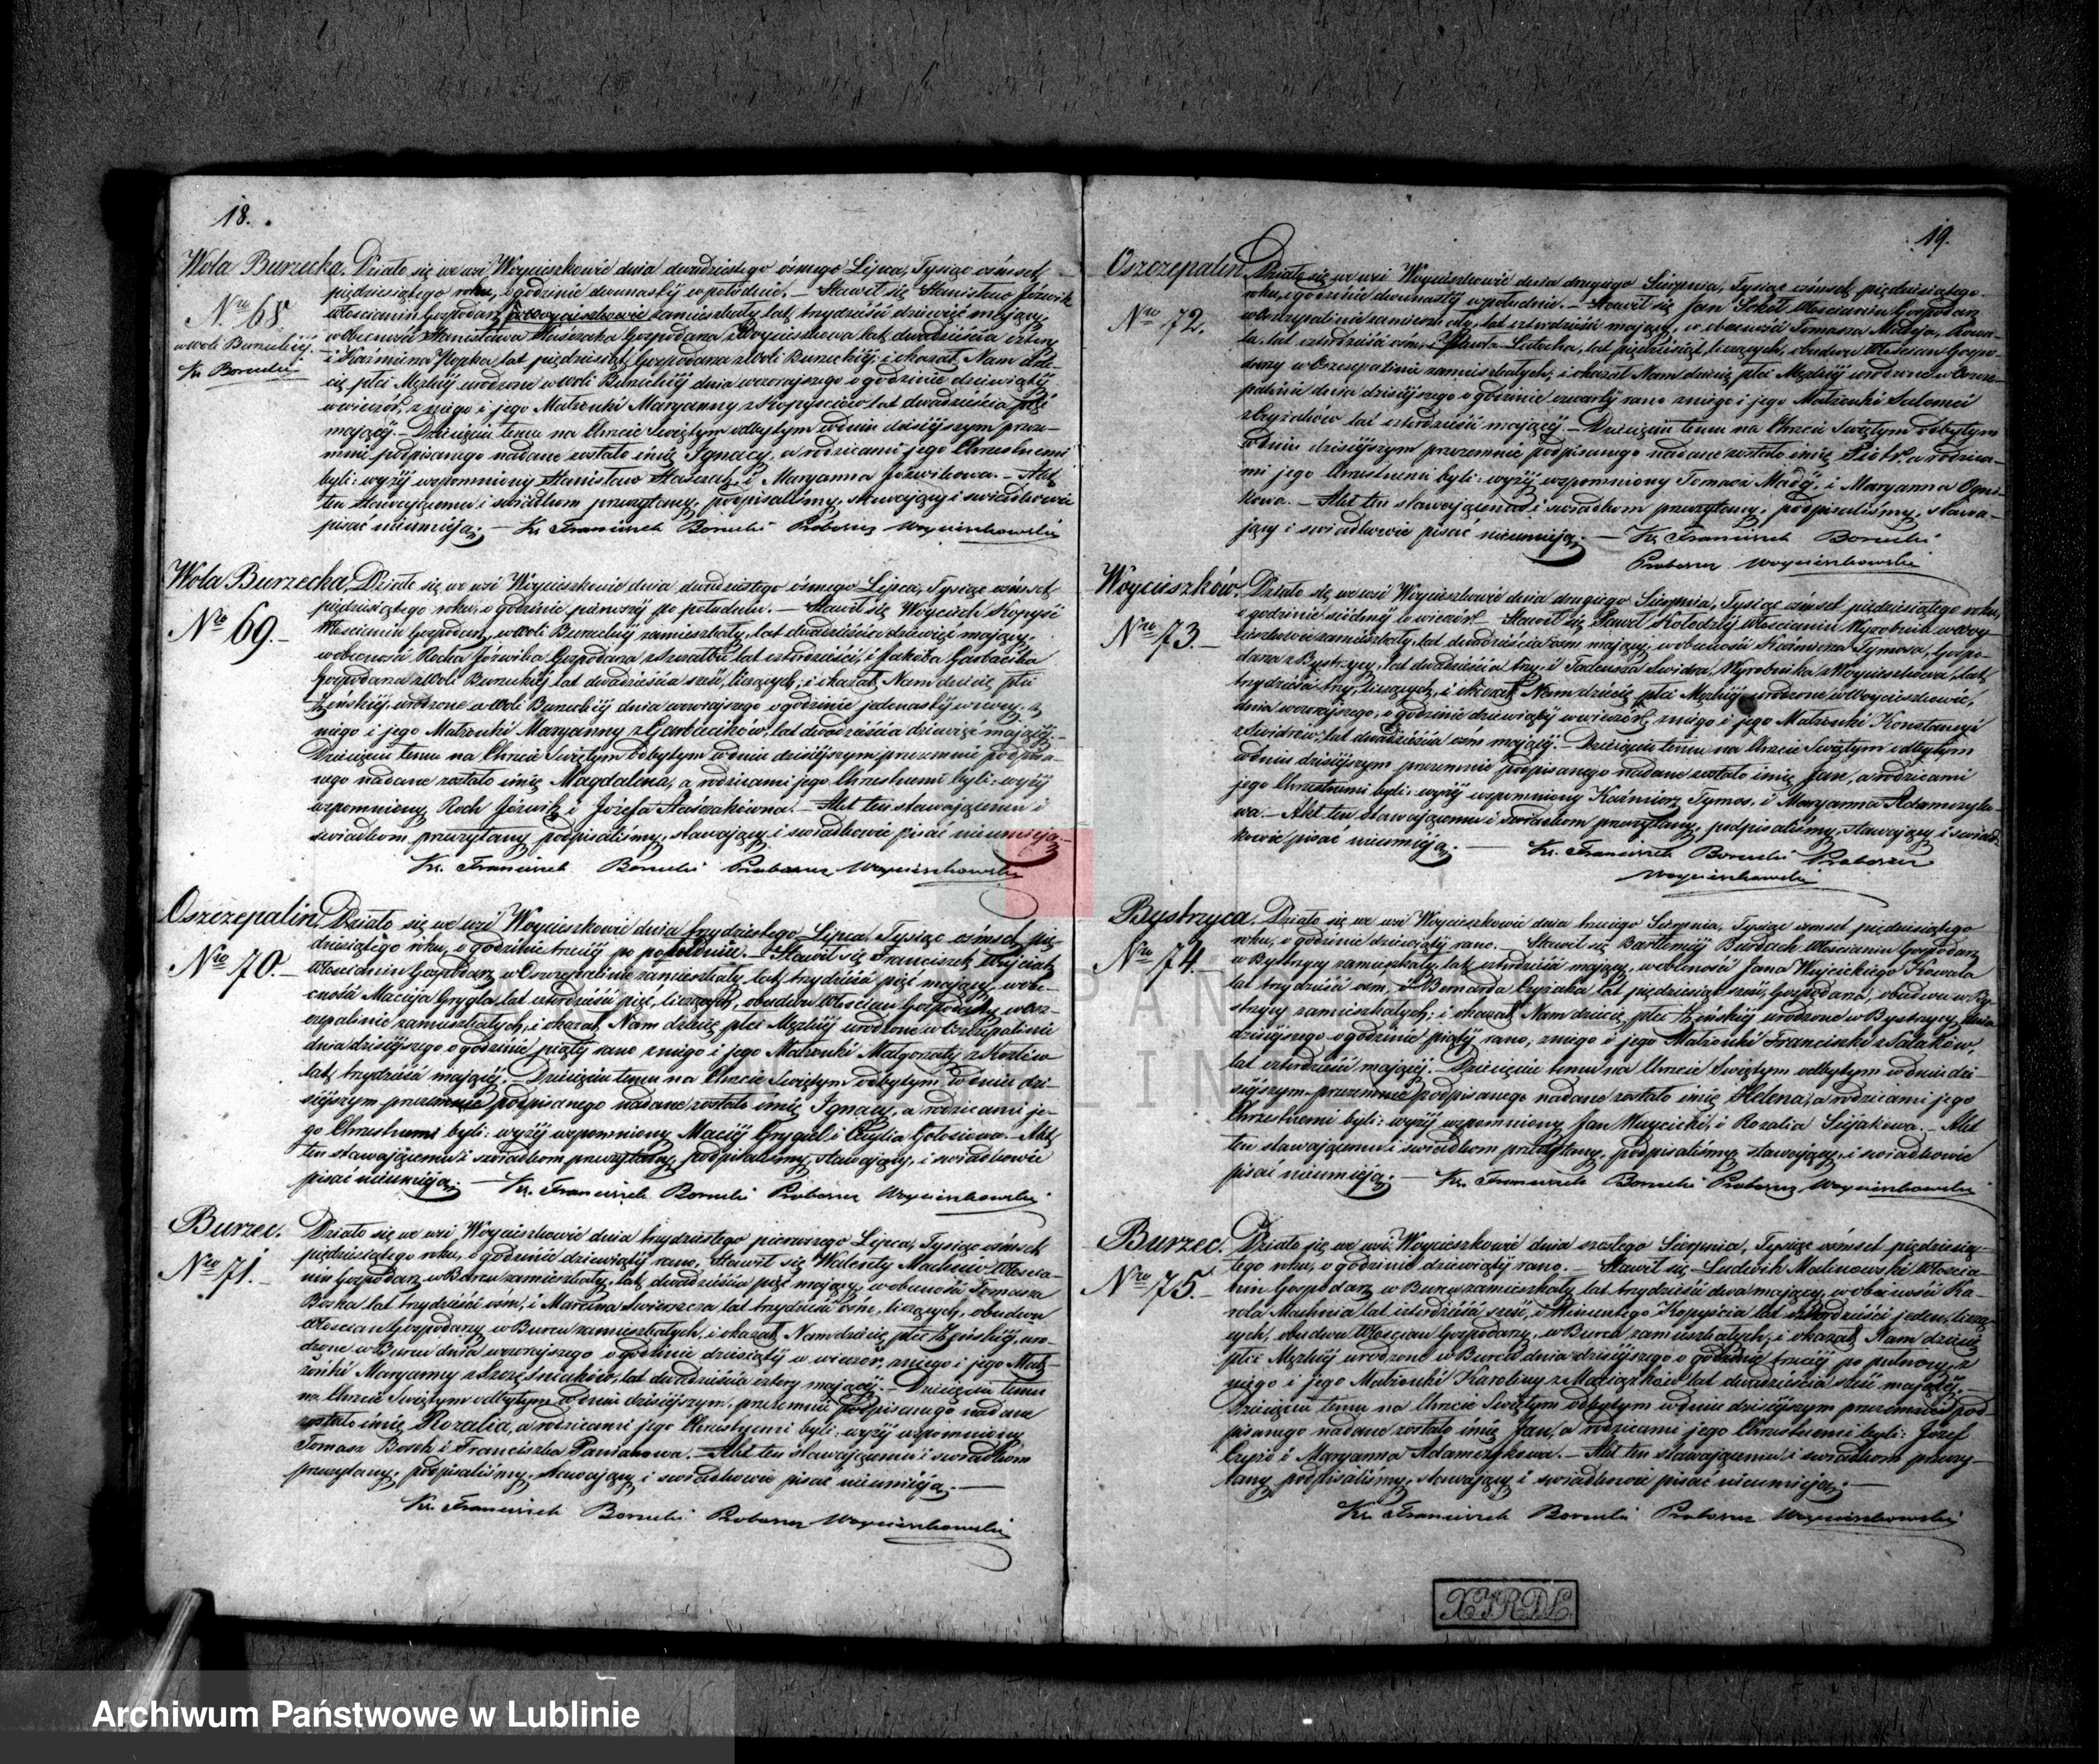 18.
Wola Burzecka. Działo się we wsi Woycieszkowie dnia dwudziestego ósmego Lipca, Tysiąc ośmset
pięćdziesiątego roku, o godzinie dwunasty w południe. — Stawił się Stanisław Józwik
Nro 68
Włościanin Gospodarz zamieszkały, lat trzydzieści dziewięć mający,
w Woli Burzeckiy
w obecności Stanisława Gospodarza z Woyciszkowa lat dwadzieścia cztery
i Kaźmierza lat pięćdziesiąt, Gospodarza z Woli Burzeckiy; i okazał Nam dzie-
Xs. Borucki
cię płci Męzkiy urodzone w Woli Burzeckiy dnia wczorayszego o godzinie dziewiąty
w wieczór, z niego i jego Małżonki Maryanny z Kopyściów lat dwadzieścia
mającéy. — Dziecięciu temu na Chrzcie Swiętym odbytym w dniu dzisieyszym przeze-
mnie podpisanego nadane zostało imię Ignacy, a rodzicami jego Chrzestnemi
byli: wyżéy wspomniony Stanisław i Maryanna Józwikowa. — Akt
ten Stawającemu i świadkom przeczytany, podpisaliśmy, stawający i świadkowie
pisać nieumieją. — Xs. Franciszek Borucki Proboszcz Woyciszkowski
Wola Burzecka, Działo się we wsi Woyciszkowie dnia dwudziestego ósmego Lipca, Tysiąc ośmset
Nro 69.
pięćdziesiątego roku, o godzinie pierwszy po południu. — Stawił się Woyciech Kopyść
Włościanin Gospodarz, w Woli Burzeckiy zamieszkały, lat dwadzieścia dziewięć mający,
w obecności Rocha Józwika Gospodarza lat czterdzieści, i Jakóba Garbacika
Gospodarza z Woli Burzeckiy lat dwadzieścia sześć, liczących; i okazał Nam dziecię płci
Żeńskiy, urodzone w Woli Burzeckiy dnia wczorayszego o godzinie jedenasty z
niego i jego Małżonki Maryanny z Garbacików, lat dwadzieścia dziewięć mającéy. —
Dziecięciu temu na Chrzcie Swiętym odbytym w dniu dzisieyszym przezemnie podpisa-
nego nadane zostało imię Magdalena, a rodzicami jego Chrzestnemi byli: wyżéy
wspomniony Roch Józwik i Józefa Staszakówna. — Akt ten stawającemu i
świadkom przeczytany podpisaliśmy, stawający i świadkowie pisać nieumieją —
Xs. Franciszek Borucki Proboszcz Woyciszkowski
Oszczepalin, Działo się we wsi Woyciszkowie dnia trzydziestego Lipca, Tysiąc ośmset pię-
Nro 70.
dziesiątego roku, o godzinie trzeciy po południu. — Stawił się Franciszek Woyciak
Włościanin Gospodarz w Oszczepalinie zamieszkały, lat trzydzieści pięć mający, w obe-
cności Macieja Grygla, lat czterdzieści pięć, liczących, obudwu Włościan Gospodarzy w Osz-
czepalinie zamieszkałych, i okazał Nam dziecię płci Męzkiy urodzone w Oszczepalinie
dnia dzisieyszego o godzinie piąty rano z niego i jego Małżonki Małgorzaty z Kozłów
lat trzydzieści mającéy. — Dziecięciu temu na Chrzcie Swiętym odbytym w dniu dzi-
sieyszym przezemnie podpisanego nadane zostało imię Ignacy, a rodzicami je-
go Chrzestnemi byli: wyżéy wspomniony Maciéy Grygiel i Cecylia Gołosiowa. — Akt
ten stawającemu i świadkom przeczytany, podpisaliśmy, stawający, i świadkowie
pisać nieumieją. — Xs. Franciszek Borucki Proboszcz Woyciszkowski
Burzec. Działo się we wsi Woyciszkowie dnia trzydziestego pierwszego Lipca, Tysiąc ośmset
Nro 71.
pięćdziesiątego roku, o godzinie dziewiąty rano. Stawił się Walenty Włościa-
nin Gospodarz, w Burcu zamieszkały, lat dwadzieścia pięć mający, w obecności Tomasza
Boska lat trzydzieści ośm, i Marcina Swierszcza lat trzydzieści ośm, liczących, obudwu
Włościan Gospodarzy, w Burcu zamieszkałych, i okazał Nam dziecię płci Żeńskiy, uro-
dzone w Burcu dnia wczorayszego o godzinie dziesiąty w wieczór, z niego i jego Mał-
żonki Maryanny z Sześniaków, lat dwadzieścia cztery mającéy. — Dziecięciu temu
na Chrzcie Swiętym odbytym w dniu dzisieyszym, przezemnie podpisanego nadane
zostało imię Rozalia, a rodzicami jego Chrzestnemi byli: wyżéy wspomniony
Tomasz Bosek i Franciszka Paniakowa. — Akt ten stawającemu i świadkom
przeczytany, podpisaliśmy, stawający i świadkowie pisać nieumieją. —
Xs. Franciszek Borucki Proboszcz Woyciszkowski
19.
Oszczepalin, Działo się we wsi Woyciszkowie dnia drugiego Sierpnia, Tysiąc ośmset pięćdziesiątego
Nro 72.
roku, o godzinie dwunasty w południe. — Stawił się Jan Sokół Włościanin Gospodarz
w Oszczepalinie zamieszkały, lat czterdzieści mający, w obecności Tomasza Kowa-
la, lat czterdzieści ośm, i lat pięćdziesiąt, liczących, obudwu Włościan Gospo-
darzy w Oszczepalinie zamieszkałych; i okazał Nam dziecię płci Męzkiy urodzone w Oszcze-
palinie dnia dzisieyszego o godzinie czwarty rano z niego i jego Małżonki Salomei
z lat czterdzieści mającéy. — Dziecięciu temu na Chrzcie Swiętym odbytym
w dniu dzisieyszym przezemnie podpisanego nadane zostało imię Piotr, a rodzica-
mi jego Chrzestnemi byli: wyżéy wspomniony Tomasz i Maryanna Ogni-
kowa. — Akt ten stawającemu i świadkom przeczytany, podpisaliśmy, stawa-
jący i świadkowie pisać nieumieją. — Xs. Franciszek Borucki
Proboszcz Woyciszkowski
Woyciszków. Działo się we wsi Woyciszkowie dnia drugiego Sierpnia, Tysiąc ośmset pięćdziesiątego roku,
Nro 73.
o godzinie siódmy w wieczór. — Stawił się Paweł Kołodziéy Włościanin Wyrobnik w Woy-
ciszkowie zamieszkały, lat dwadzieścia ośm mający, w obecności Kaźmierza Tymosa, Gospo-
darza z Bystrzycy, lat dwadzieścia trzy, i Tadeusza Swidra, Wyrobnika z Woyciszkowa, lat
trzydzieści trzy, liczących, i okazał Nam dziecię płci Męzkiy urodzone w Woyciszkowie,
dnia wczorayszego, o godzinie dziewiąty w wieczór, z niego i jego Małżonki Konstancyi
z Swidrów, lat dwadzieścia ośm mającéy. — Dziecięciu temu na Chrzcie Swiętym odbytym
w dniu dzisieyszym przezemnie podpisanego nadane zostało imię Jan, a rodzicami
jego Chrzestnemi byli: wyżéy wspomniony Kaźmierz Tymos, i Maryanna Adamczyko-
wa. — Akt ten stawającemu i świadkom przeczytany, podpisaliśmy, stawający i świad-
kowie pisać nieumieją. — Xs. Franciszek Borucki Proboszcz
Woyciszkowski
Bystrzyca. Działo się we wsi Woyciszkowie dnia trzeciego Sierpnia, Tysiąc ośmset pięćdziesiątego
Nro 74.
roku, o godzinie dziewiąty rano. — Stawił się Bartłomiéy Włościanin Gospodarz
w Bystrzycy zamieszkały, lat czterdzieści mający, w obecności Jana Woycickiego Kowala
lat trzydzieści ośm, i Bernarda lat pięćdziesiąt sześć, Gospodarza, obudwu w By-
strzycy zamieszkałych; i okazał Nam dziecię płci Żeńskiy urodzone w Bystrzycy, dnia
dzisieyszego o godzinie piąty rano, z niego i jego Małżonki Franciszki z Sałaków,
lat czterdzieści mającéy. — Dziecięciu temu na Chrzcie Swiętym odbytym w dniu dzi-
sieyszym przezemnie podpisanego nadane zostało imię Helena, a rodzicami jego
Chrzestnemi byli: wyżéy wspomniony Jan Woycicki, i Rozalia. — Akt
ten stawającemu i świadkom przeczytany, podpisaliśmy, stawający i świadkowie
pisać nieumieją. — Xs. Franciszek Borucki Proboszcz Woyciszkowski
Burzec. Działo się we wsi Woyciszkowie dnia szóstego Sierpnia, Tysiąc ośmset pięćdziesią-
Nro 75.
tego roku, o godzinie dziewiąty rano. — Stawił się Ludwik Malinowski Włościa-
nin Gospodarz w Burcu zamieszkały lat trzydzieści dwa mający, w obecności Ka-
rola Machnia lat czterdzieści sześć, i Wincentego Kopyścia lat czterdzieści jeden, liczą-
cych, obudwu Włościan Gospodarzy, w Burcu zamieszkałych; i okazał Nam dziecię
płci Męzkiy urodzone w Burcu dnia dzisieyszego o godzinie trzeciy po północy, z
niego i jego Małżonki Karoliny z Maciązków lat dwadzieścia sześć mającéy.
Dziecięciu temu na Chrzcie Swiętym odbytym w dniu dzisieyszym przezemnie pod-
pisanego nadane zostało imię Jan, a rodzicami jego Chrzestnemi byli: Józef
i Maryanna Adamczykowa. — Akt ten stawającemu i świadkom przeczy-
tany podpisaliśmy, stawający i świadkowie pisać nieumieją. —
Xs. Franciszek Borucki Proboszcz Woyciszkowski
Archiwum Państwowe w Lublinie